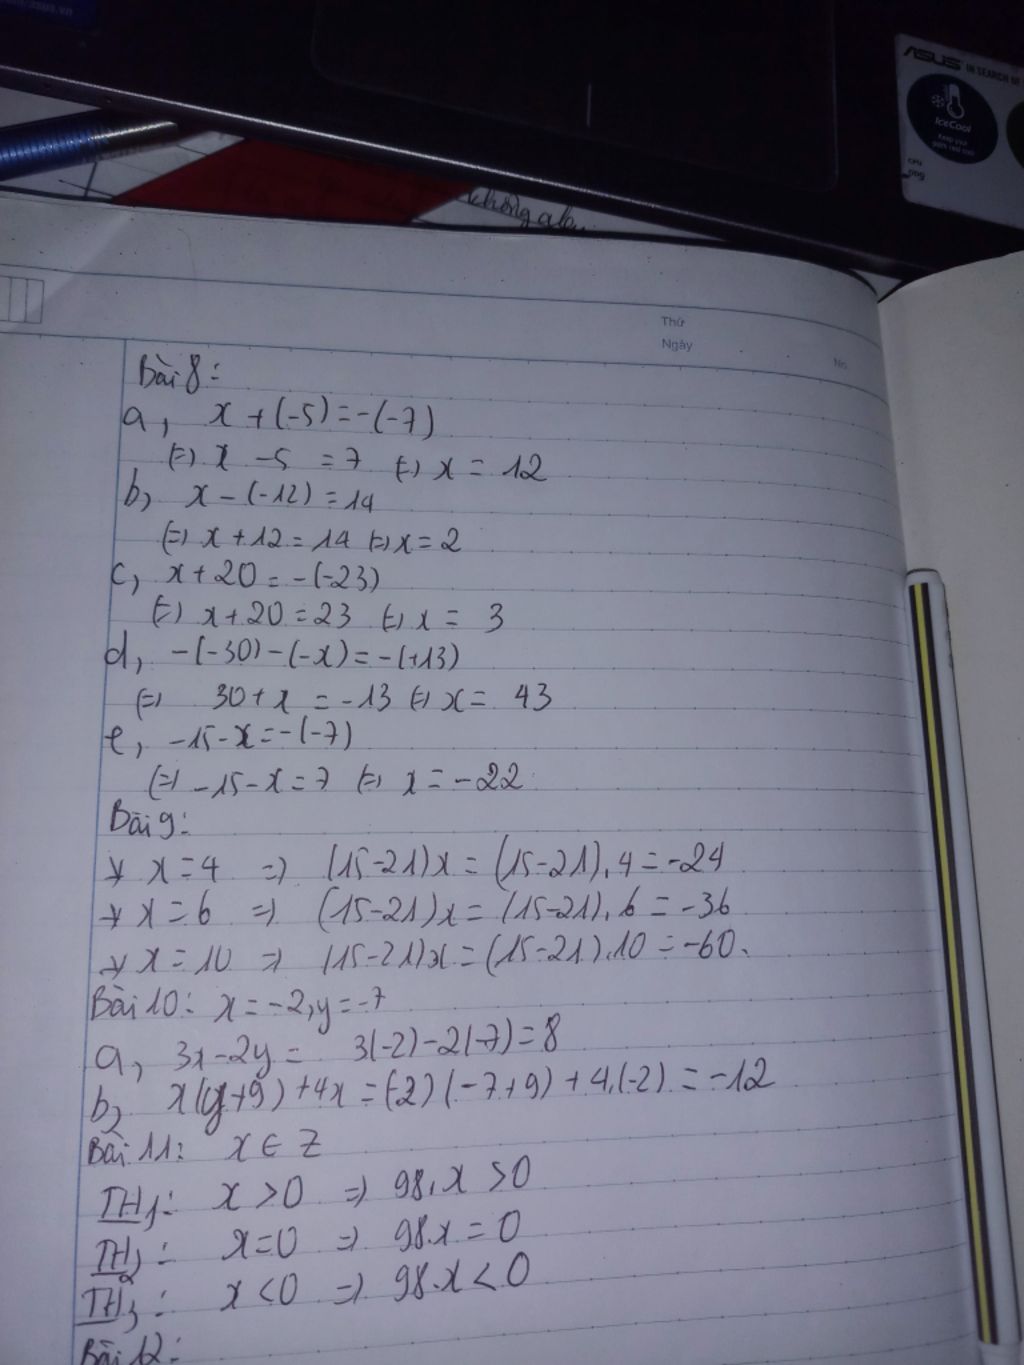 ASUS IN SEARCH OF
IceCool
CPU
không
Thứ
Ngày
No.
Bài 8:
a, x + (-5) = -(-7)
(=) x - 5 = 7 (=) x = 12
b, x - (-12) = 14
(=) x + 12 = 14 (=) x = 2
c, x + 20 = -(-23)
(=) x + 20 = 23 (=) x = 3
d, -(-30) - (-x) = -(+13)
(=) 30 + x = -13 (=) x = 43
e, -15 - x = -(-7)
(=) -15 - x = 7 (=) x = -22
Bài 9:
* x = 4 => (15-21)x = (15-21).4 = -24
* x = 6 => (15-21)x = (15-21).6 = -36
* x = 10 => (15-21)x = (15-21).10 = -60.
Bài 10: x = -2, y = -7
a, 3x - 2y = 3(-2) - 2(-7) = 8
b, x(y+9) + 4x = (-2)(-7+9) + 4.(-2) = -12
Bài 11: x ∈ Z
TH1: x > 0 => 98.x > 0
TH2: x = 0 => 98.x = 0
TH3: x < 0 => 98.x < 0
Bài 12: